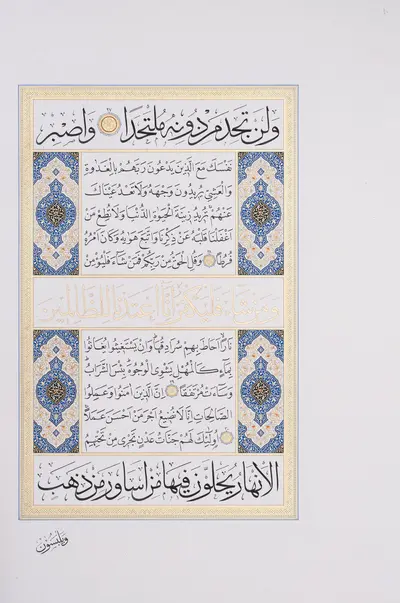 ولن تجد من دونه ملتحدا واصبر
نفسك مع الذين يدعون ربهم بالغدوة
والعشي يريدون وجهه ولا تعد عيناك
عنهم تريد زينة الحيوة الدنيا ولا تطع من
اغفلنا قلبه عن ذكرنا واتبع هويه وكان امره
فرطا وقل الحق من ربكم فمن شاء فليؤمن
ومن شاء فليكفر انا اعتدنا للظالمين
نارا احاط بهم سرادقها وان يستغيثوا يغاثوا
بماء كالمهل يشوي الوجوه بئس الشراب
وساءت مرتفقا ان الذين امنوا وعملوا
الصالحات انا لا نضيع اجر من احسن عملا
اولئك لهم جنات عدن تجري من تحتهم
الانهار يحلون فيها من اساور من ذهب
ويلبسون